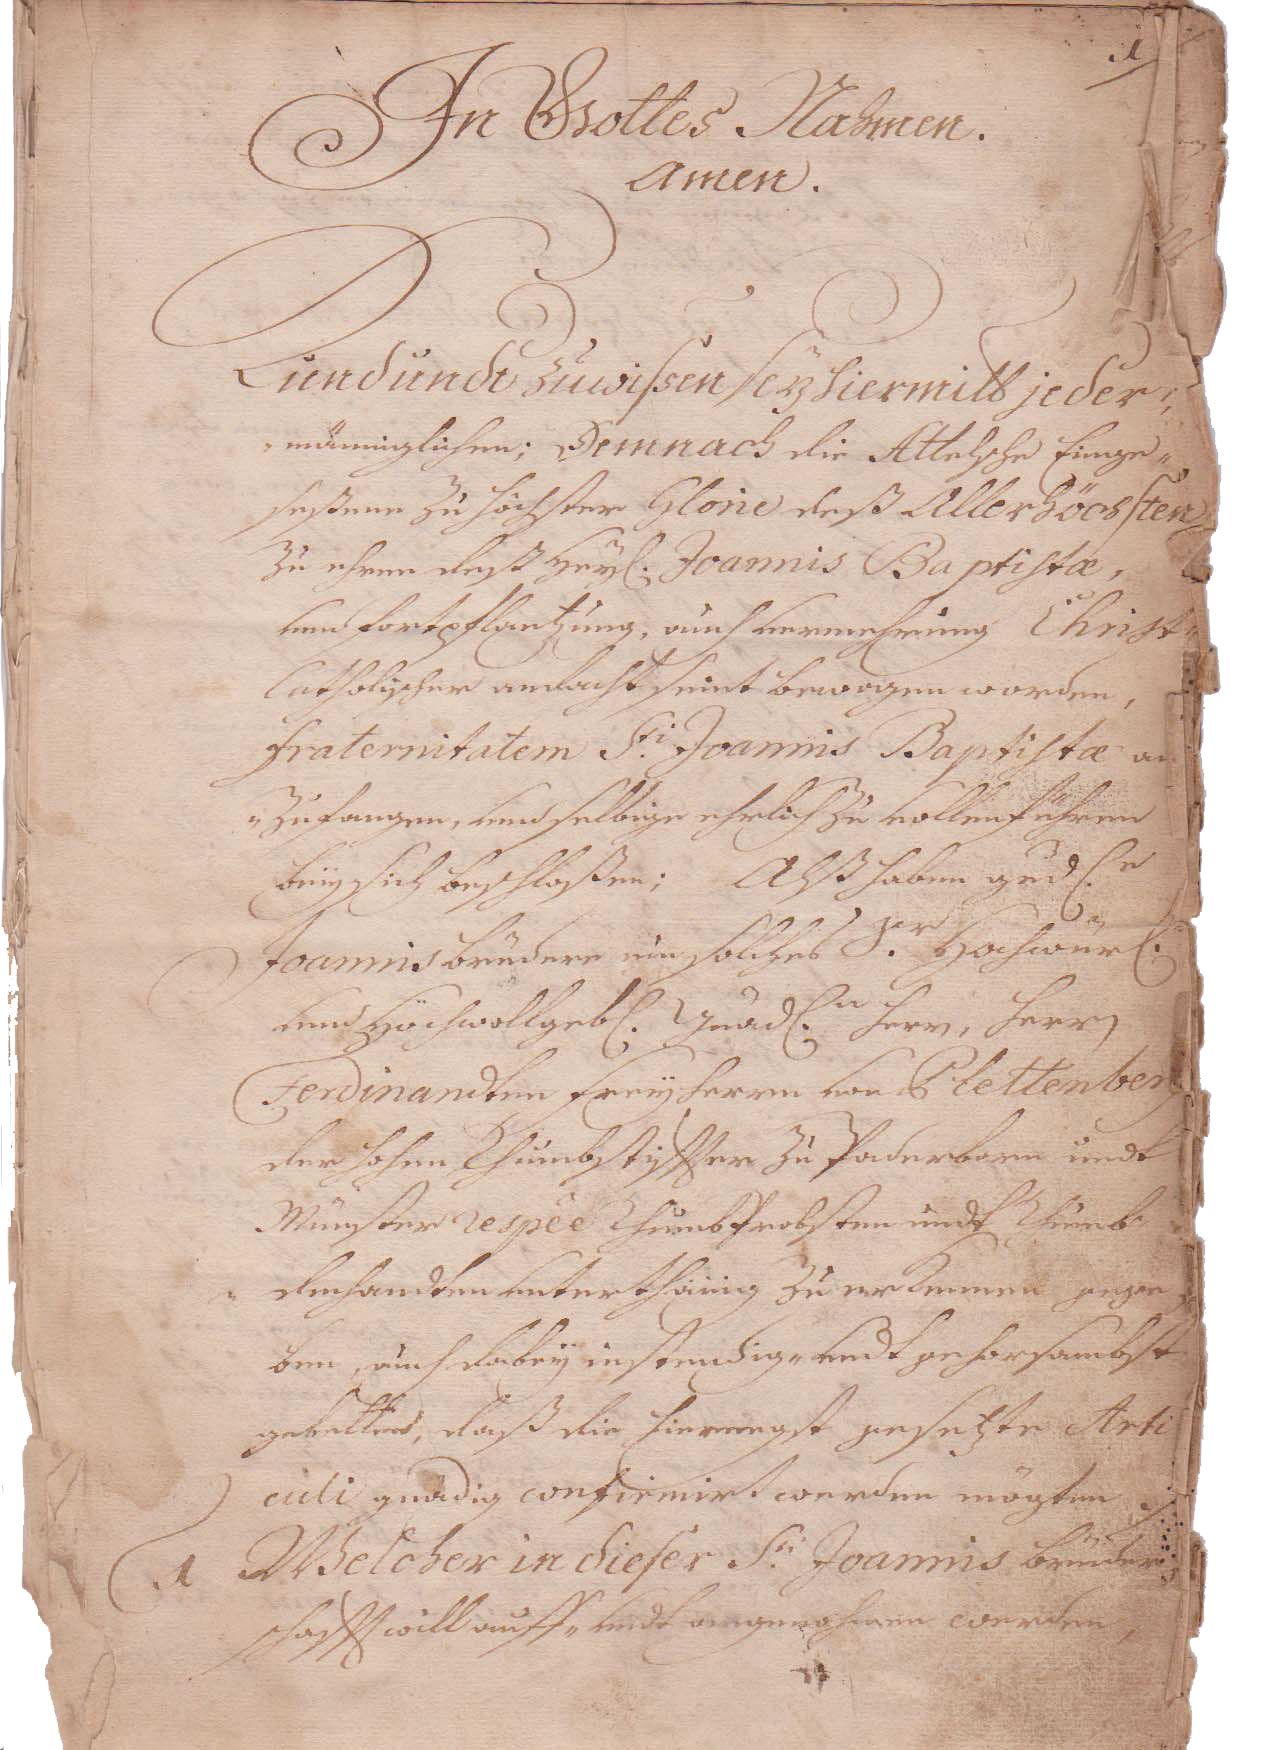 1
In Gottes Nahmen.
Amen.
Kund undt zu wißen seÿ hiermitt jeder,,
männiglichen; Demnach die Attelsche Einge,,
seßene zu höchster Glorie deß Allerhöchsten
zu ehren deß Heyl. Joannis Baptistæ,
und fortpflantzung, auch vermehrung Christ,,
Catholischer andacht seint bewogen worden,
fraternitatem Sti. Joannis Baptistæ an
,,zufangen, und selbige ehrlich zu vollenführen
beÿ sich beschloßen; Alß haben
Joannis brüdere ein solches Hochwür
und Hochwollgeb. Gnäd. Herrn, Herrn
Ferdinandten Freÿherrn von Plettenberg
der hohen Thumbstiffter zu Paderborn undt
Münster respēe Thumb Probsten undt Thumb
,, dechandten unterthänig zu erkennen gege
ben, auch dabeÿ instendig,, undt gehorsambst
gebetten, daß die hiernegst gesetzte Arti
culi gnädig confirmirt werden mögten
1 Welcher in dieser Sti. Joannis brüder
schafft will auff,, undt angenohmen werden,